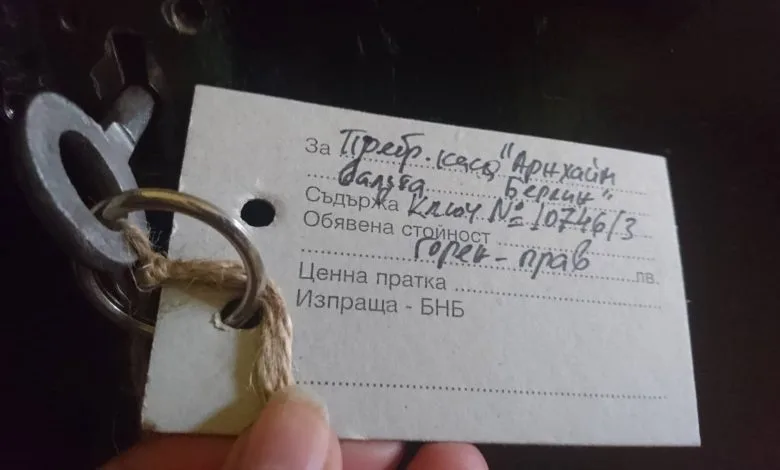 За Требр. каса "Арнхайм
валута Берлин"
Съдържа Ключ № 10746/3
Обявена стойност
Горен - прав лв.
Ценна пратка
Изпраща - БНБ